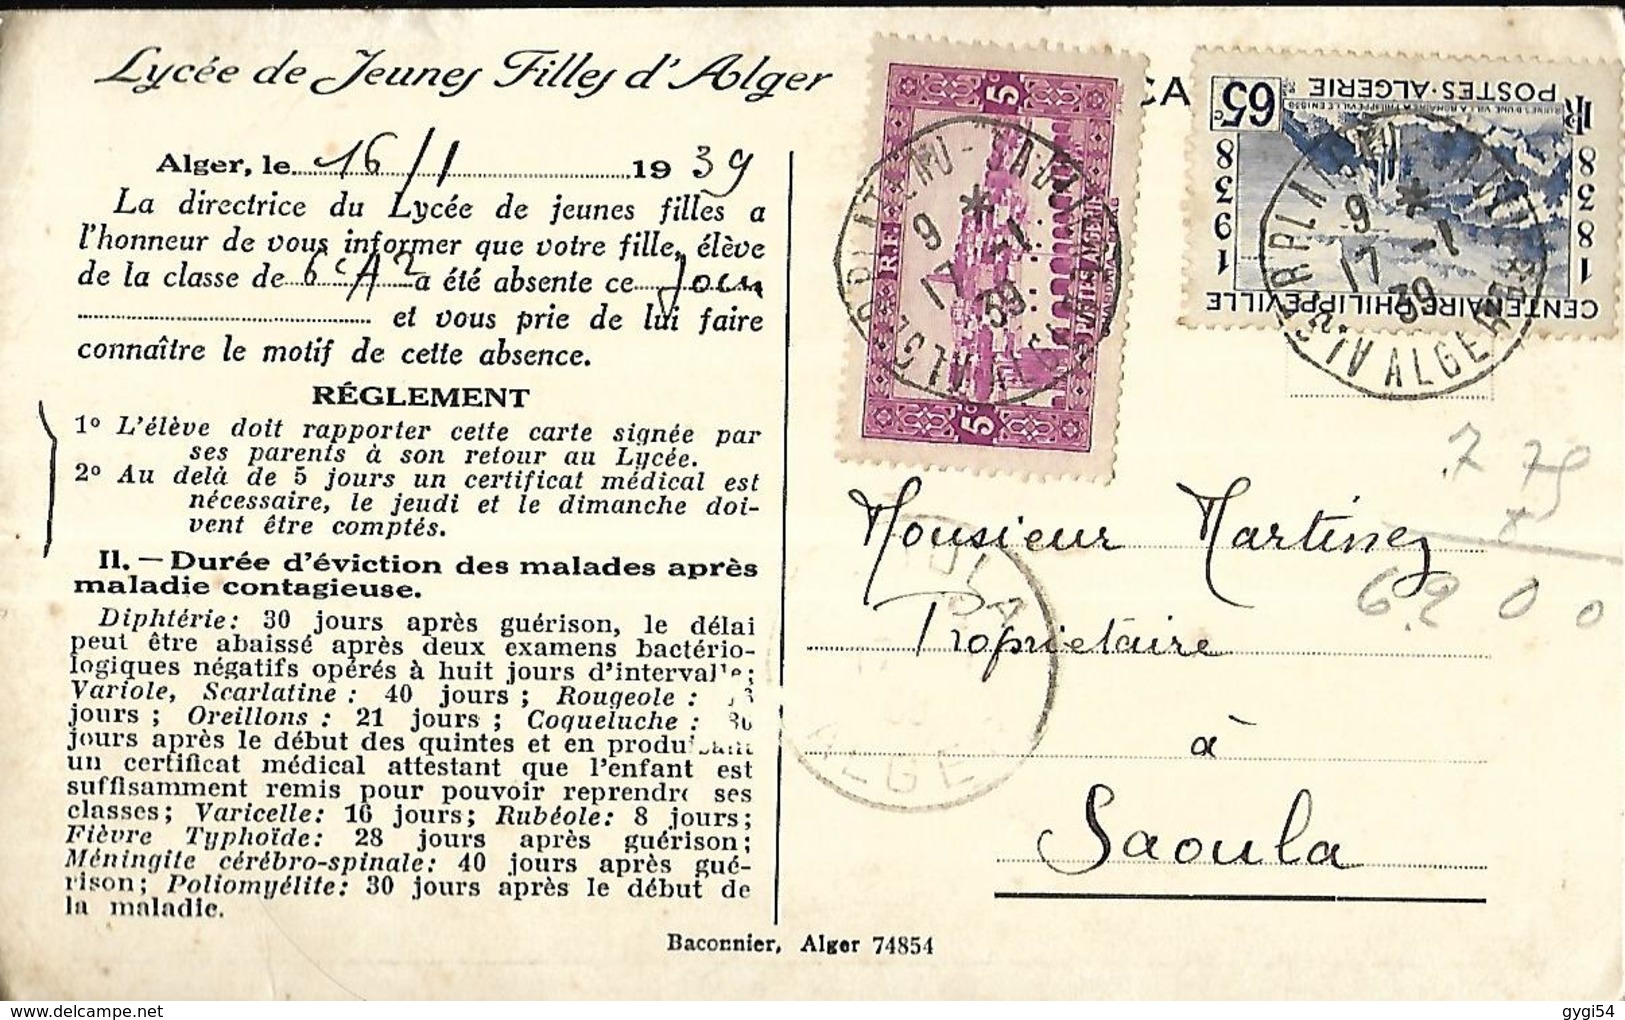 Lycée de Jeunes Filles d'Alger
Alger, le 16/1 1939
La directrice du Lycée de jeunes filles a
l'honneur de vous informer que votre fille, élève
de la classe de 6e A2 a été absente ce jour
et vous prie de lui faire
connaître le motif de cette absence.
RÉGLEMENT
1° L'élève doit rapporter cette carte signée par
ses parents à son retour au Lycée.
2° Au delà de 5 jours un certificat médical est
nécessaire, le jeudi et le dimanche doi-
vent être comptés.
II. — Durée d'éviction des malades après
maladie contagieuse.
Diphtérie: 30 jours après guérison, le délai
peut être abaissé après deux examens bactério-
logiques négatifs opérés à huit jours d'intervalle;
Variole, Scarlatine : 40 jours ; Rougeole :
jours ; Oreillons : 21 jours ; Coqueluche : 30
jours après le début des quintes et en produisant
un certificat médical attestant que l'enfant est
suffisamment remis pour pouvoir reprendre ses
classes; Varicelle: 16 jours; Rubéole: 8 jours;
Fièvre Typhoïde: 28 jours après guérison;
Méningite cérébro-spinale: 40 jours après gué-
rison; Poliomyélite: 30 jours après le début de
la maladie.
Baconnier, Alger 74854
CA
5c
RF
POSTES ALGERIE
5c
9 *
17 -1
39
65c
POSTES·ALGERIE
RF
1838
1938
CENTENAIRE PHILIPPEVILLE
9 *
17 -1
39
ALGER
7 75
6200
Monsieur Martinez
Propriétaire
à
Saoula
ALGE
gygi54